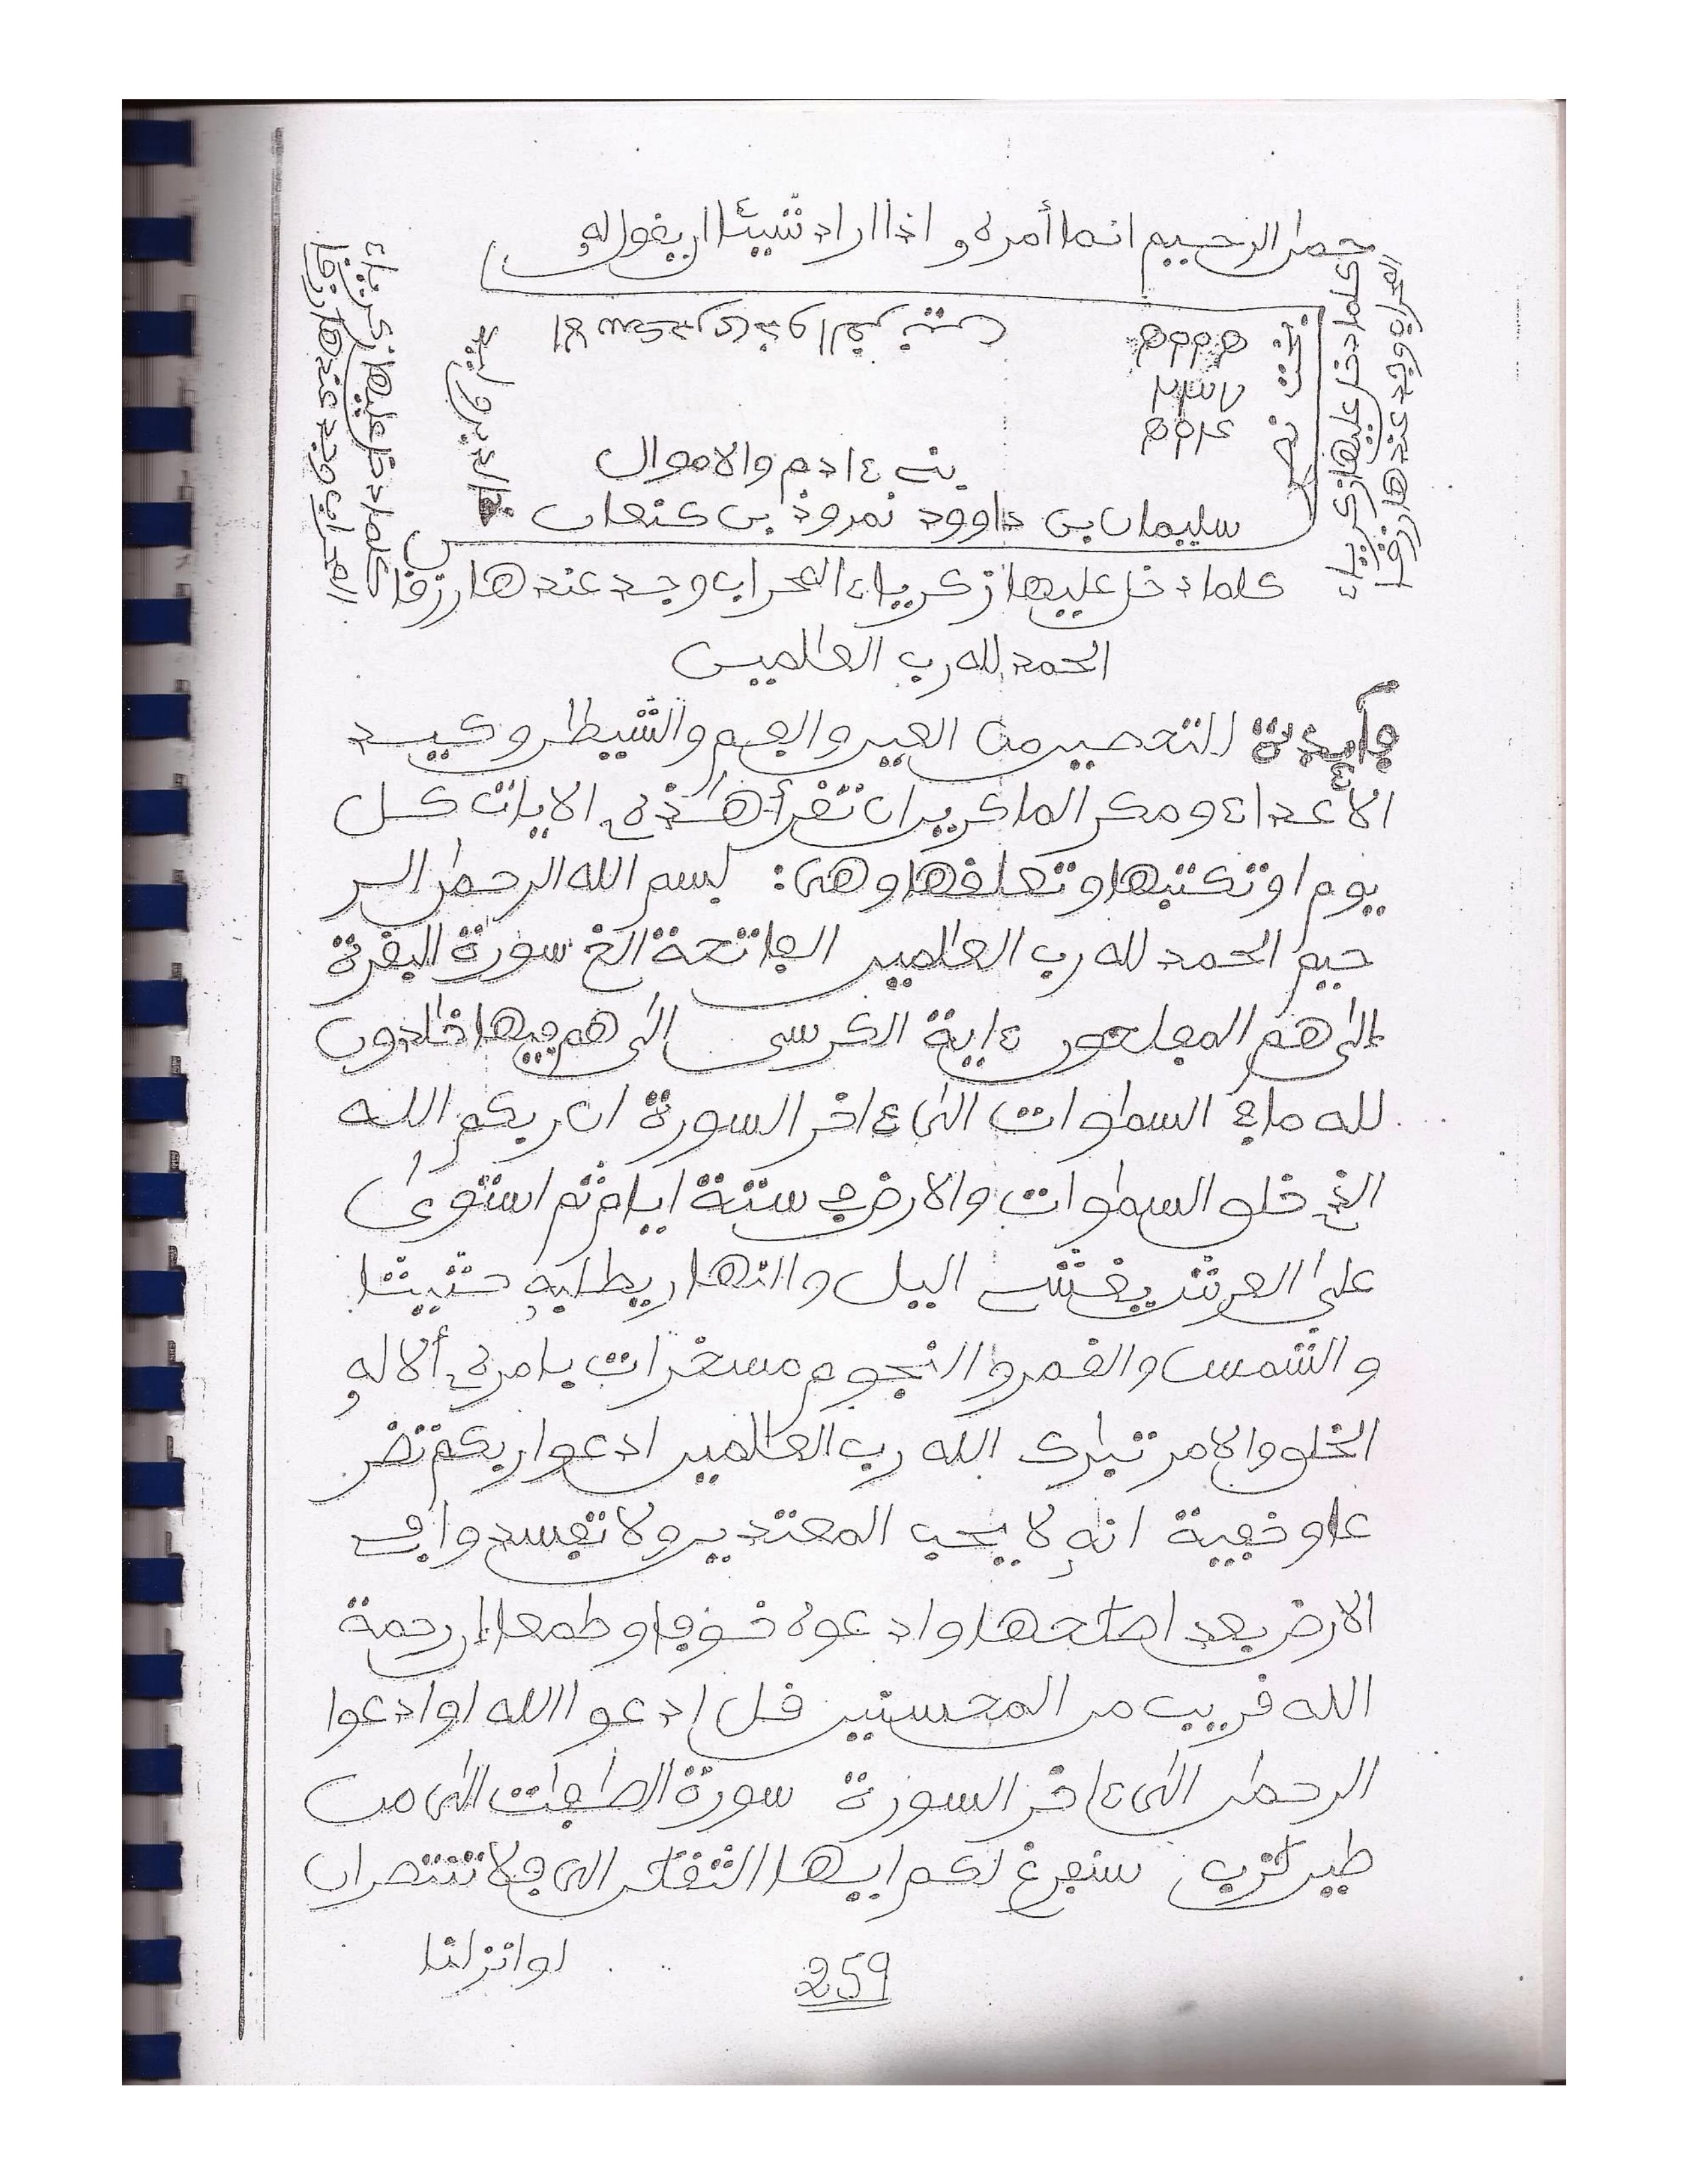 حمن الرحيم انما أمره و اذا اراد شيئا ان يقول له
بني ءادم والاموال
سليمان بن داوود نمروذ بن كنعان
بخت نصر
كلما دخل عليها زكرياء
المحراب وجد عندها رزقا
كلما دخل عليها زكرياء المحراب وجد عندها رزقا
كلما دخل عليها زكرياء
المحراب وجد عندها رزقا
الحمد لله رب العالمين
فأيدة للتحصين من العين والهم والشيطن وكيد
الأعداء ومكر الماكرين ان تقرأ هذه الايات كل
يوم او تكتبها وتعلقها وهي: بسم الله الرحمن الر
حيم الحمد لله رب العالمين الفاتحة الخ سورة البقرة
الى هم المفلحون ءاية الكرسي الى هم فيها خلدون
لله ما في السموات الى ءاخر السورة ان ربكم الله
الذي خلق السموات والارض في ستة ايام ثم استوى
على العرش يغشي اليل والنهار يطلبه حثيثا
والشمس والقمر والنجوم مسخرات بامره ألا له
الخلق والامر تبرك الله رب العالمين ادعوا ربكم تضر
عا وخفية انه لا يحب المعتدين ولا تفسدوا في
الارض بعد اصلحها وادعوه خوفا وطمعا ان رحمة
الله قريب من المحسنين قل ادعو االله او ادعوا
الرحمن الى ءاخر السورة سورة الصفت الى من
طين لازب سنفرغ لكم ايها الثقلن الى فلا تنتصران
لو انزلنا
259